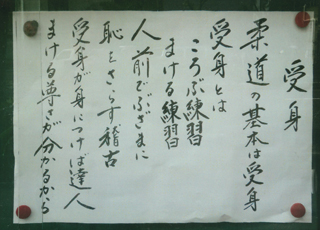 受身
柔道の基本は受身
受身とは
ころぶ練習
まける練習
人前でぶざまに
恥をさらす稽古
受身が身につけば達人
まける尊さが分かるから